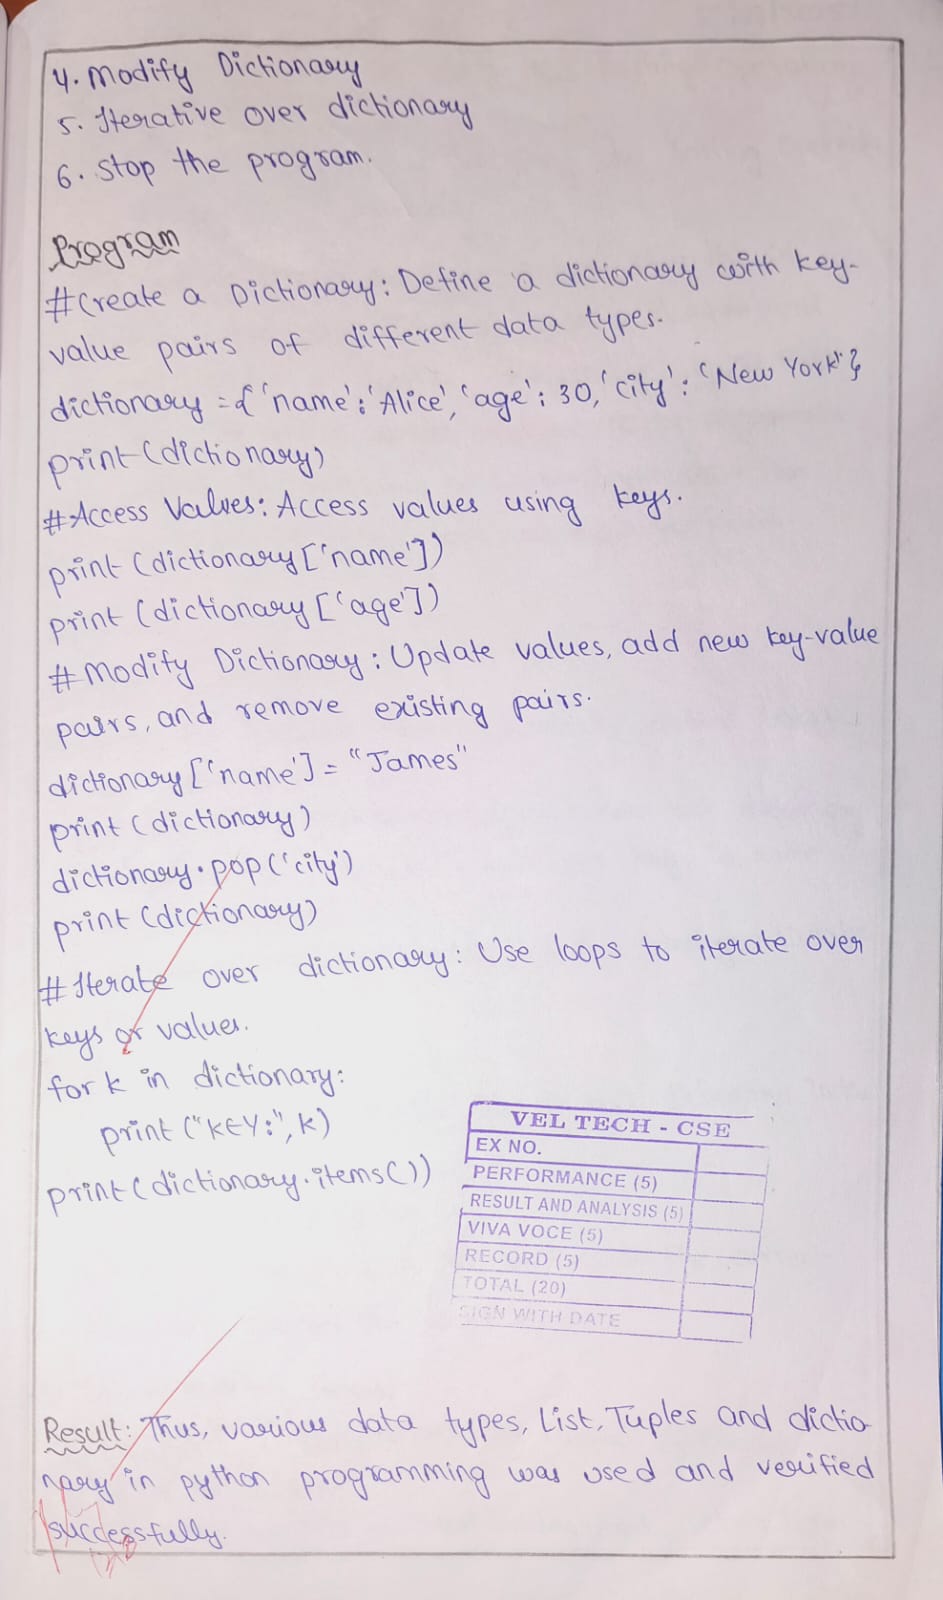 4. Modify Dictionary
5. Iterative over dictionary
6. Stop the program.
Program
#Create a Dictionary: Define a dictionary with key-
value pairs of different data types.
dictionary = { 'name': 'Alice', 'age': 30, 'city': 'New York' }
print (dictionary)
#Access Values: Access values using keys.
print (dictionary ['name'])
print (dictionary ['age'])
#Modify Dictionary: Update values, add new key-value
pairs, and remove existing pairs.
dictionary ['name'] = "James"
print (dictionary)
dictionary.pop ('city')
print (dictionary)
#Iterate over dictionary: Use loops to iterate over
keys or values.
for k in dictionary:
print ("KEY:", k)
print (dictionary.items())
VEL TECH - CSE
EX NO.
PERFORMANCE (5)
RESULT AND ANALYSIS (5)
VIVA VOCE (5)
RECORD (5)
TOTAL (20)
SIGN WITH DATE
Result: Thus, various data types, List, Tuples and dictio
nary in python programming was used and verified
successfully.